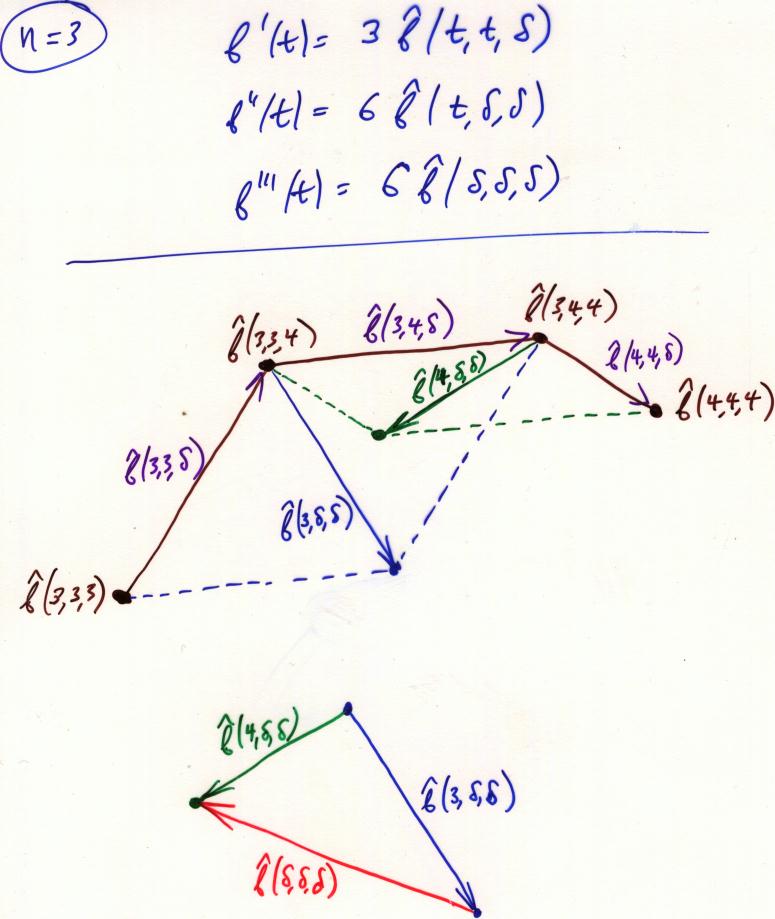 n=3
b̂'(t) = 3 b̂(t, t, δ)
b''(t) = 6 b̂(t, δ, δ)
b'''(t) = 6 b̂(δ, δ, δ)
b̂(3,3,4)
b̂(3,4,δ)
b̂(3,4,4)
b̂(4,δ,δ)
b̂(4,4,δ)
b̂(4,4,4)
b̂(3,3,δ)
b̂(3,δ,δ)
b̂(3,3,3)
b̂(4,δ,δ)
b̂(3,δ,δ)
b̂(δ,δ,δ)